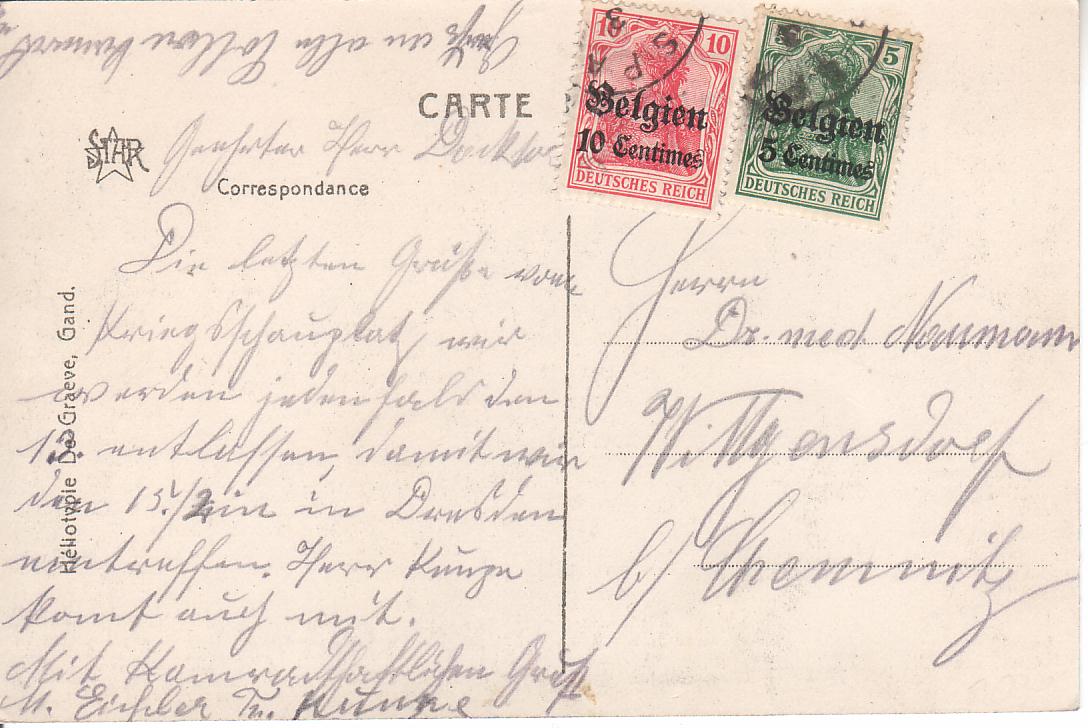 CARTE
STAR
Correspondance
Héliotypie De Graeve, Gand.
10 10
Belgien
10 Centimes
DEUTSCHES REICH
5
Belgien
5 Centimes
DEUTSCHES REICH
SPA
Geehrter Herr Docktor
Die letzten Grüße vom
Kriegsschauplatz, wir
werden jedenfals den
12. entlassen, damit wir
den 15./2 in Dresden
eintreffen. Herr Kunze
komt auch mit.
Mit Kamradschaftlichen Gruß
M. Eichler Kunze
Gruß an alle
Herrn
Dr. med. Naumann
Wittgensdorf
b/ Chemnitz